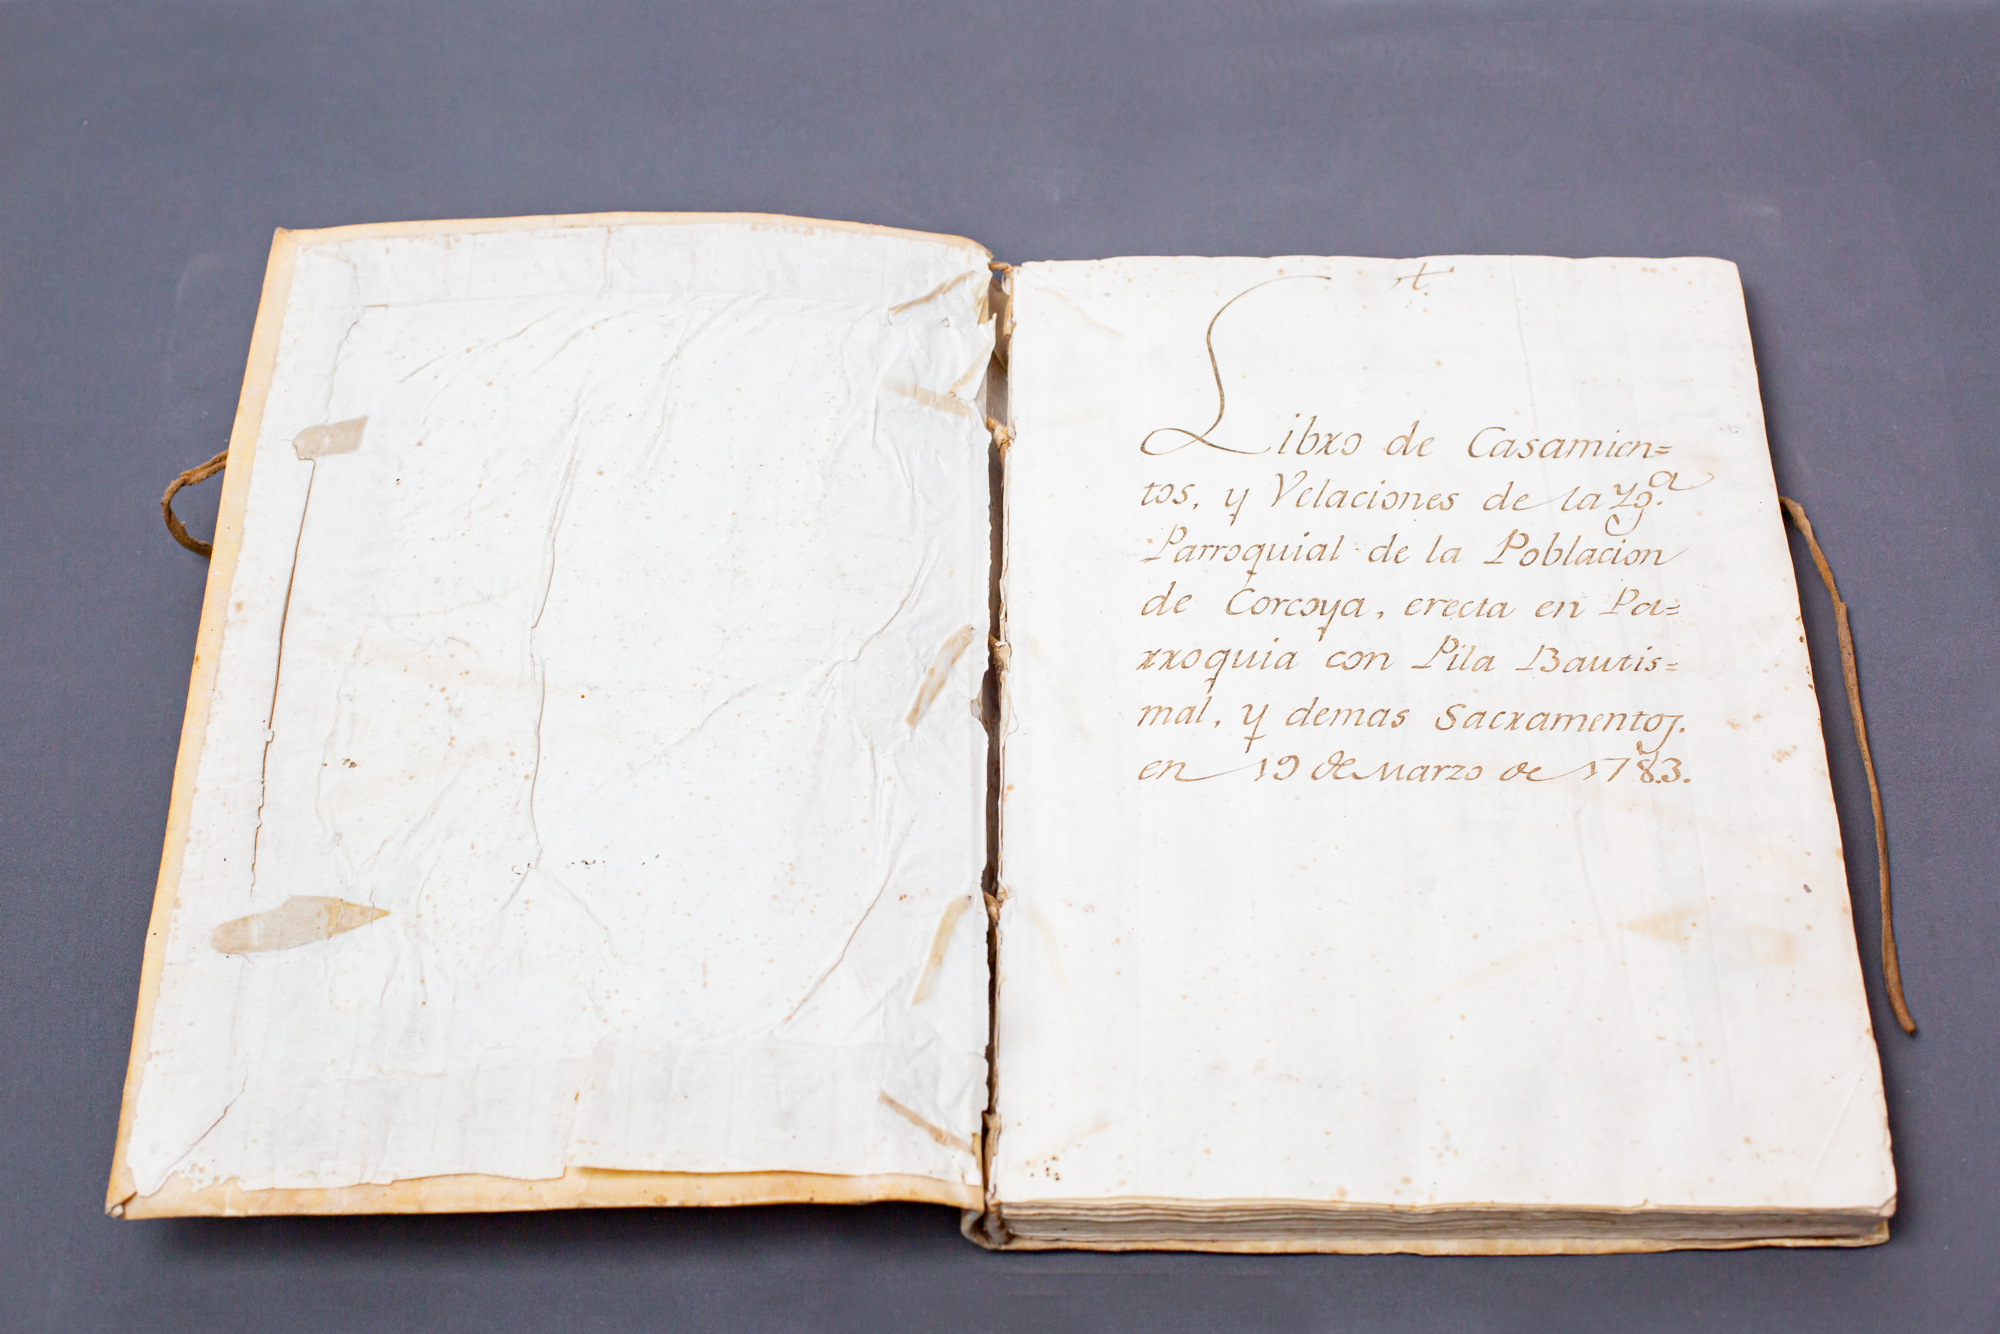 +
Libro de Casamien=
tos, y Velaciones de la Yg.ª
Parroquial de la Poblacion
de Corcoya, erecta en Pa=
rroquia con Pila Bautis=
mal, y demas Sacramentos.
en 19 de Marzo de 1783.